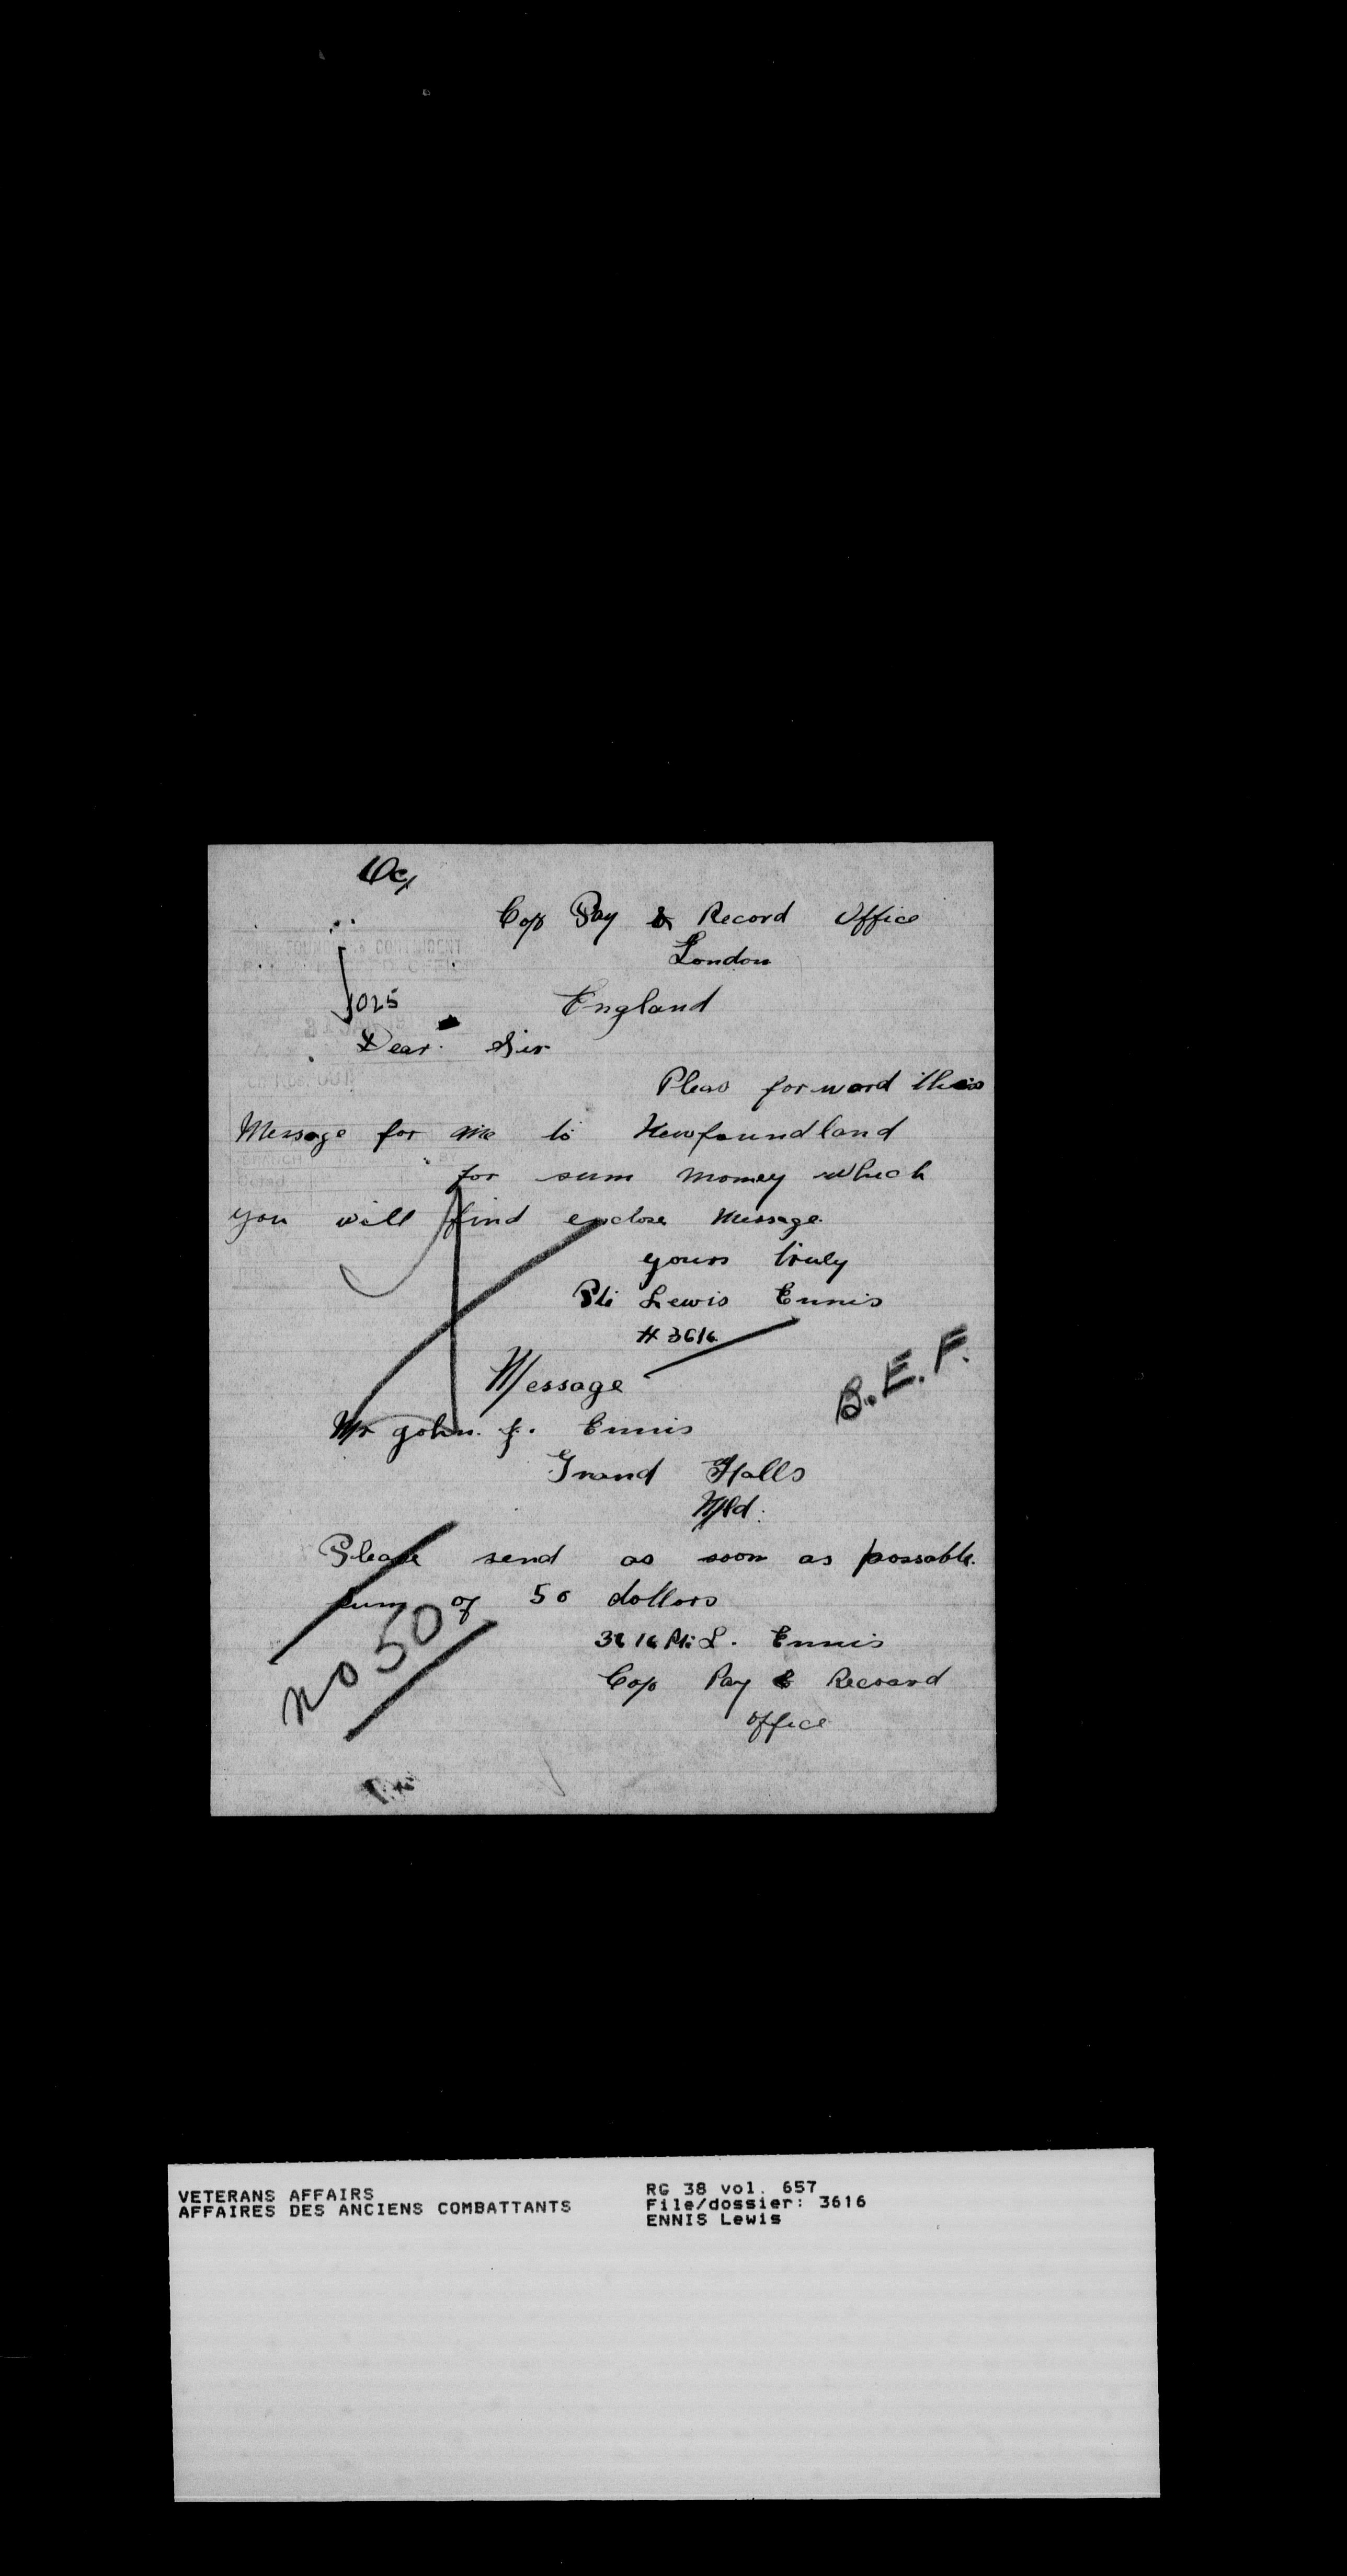 Cop Pay & Record Office
London
1025
England
Dear Sir
Pleas forword this
Message for me to Newfoundland
for sum money which
you will find enclose Message.
yours truly
Pte Lewis Ennis
# 3616
Message
B.E.F.
Mr John. J. Ennis
Grand Falls
Nfld.
Please send as soon as possable.
sum of 50 dollors
no 50
3616 Pte L. Ennis
Cop Pay & Recoard
office
VETERANS AFFAIRS
AFFAIRES DES ANCIENS COMBATTANTS
RG 38 vol. 657
File/dossier: 3616
ENNIS Lewis